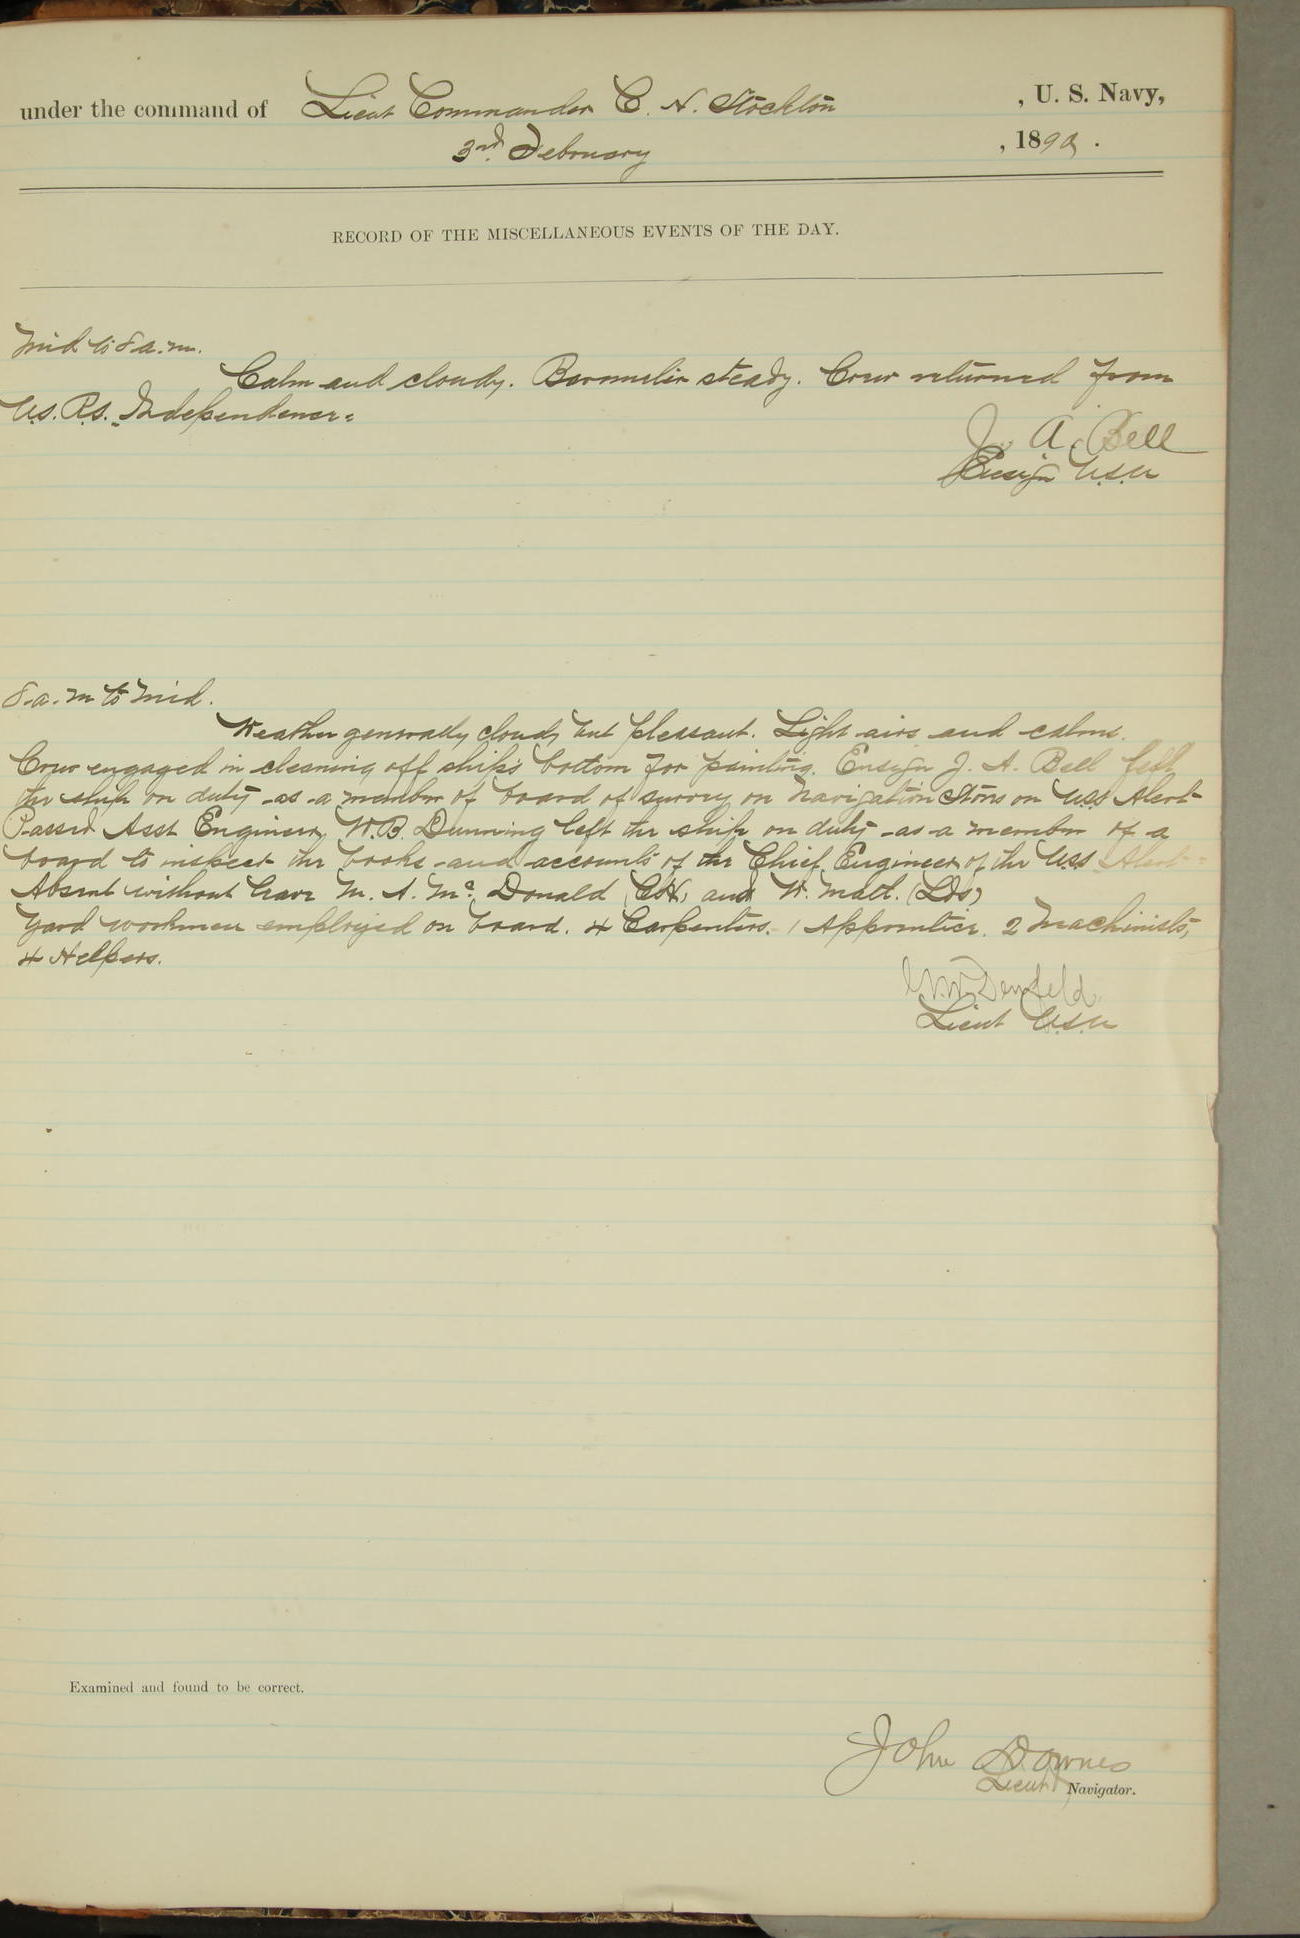 under the command of Lieut Commander C. H. Stockton, U. S. Navy,
3rd. February, 1892.
RECORD OF THE MISCELLANEOUS EVENTS OF THE DAY.
Mid to 8 a.m.
Calm and cloudy. Barometer steady. Crew returned from
U.S. R.S. "Independence"
J. A. Bell
Ensign U.S.N
8 a. m to Mid.
Weather generally cloudy but pleasant. Light airs and calms.
Crew engaged in cleaning off ship's bottom for painting. Ensign J. A. Bell left
the ship on duty as a member of board of survey on Navigation Stores on USS Alert
Passed Asst Engineer W. B. Dunning left the ship on duty as a member of a
board to inspect the books and accounts of the Chief Engineer of the USS Alert
Absent without leave M. A. Mc. Donald and W. (Lds)
Yard workmen employed on board. 4 Carpenters. 1 Apprentice. 2 Machinists,
4 Helpers.
Denfeld
Lieut U.S.N
Examined and found to be correct.
John Downes
Lieut Navigator.